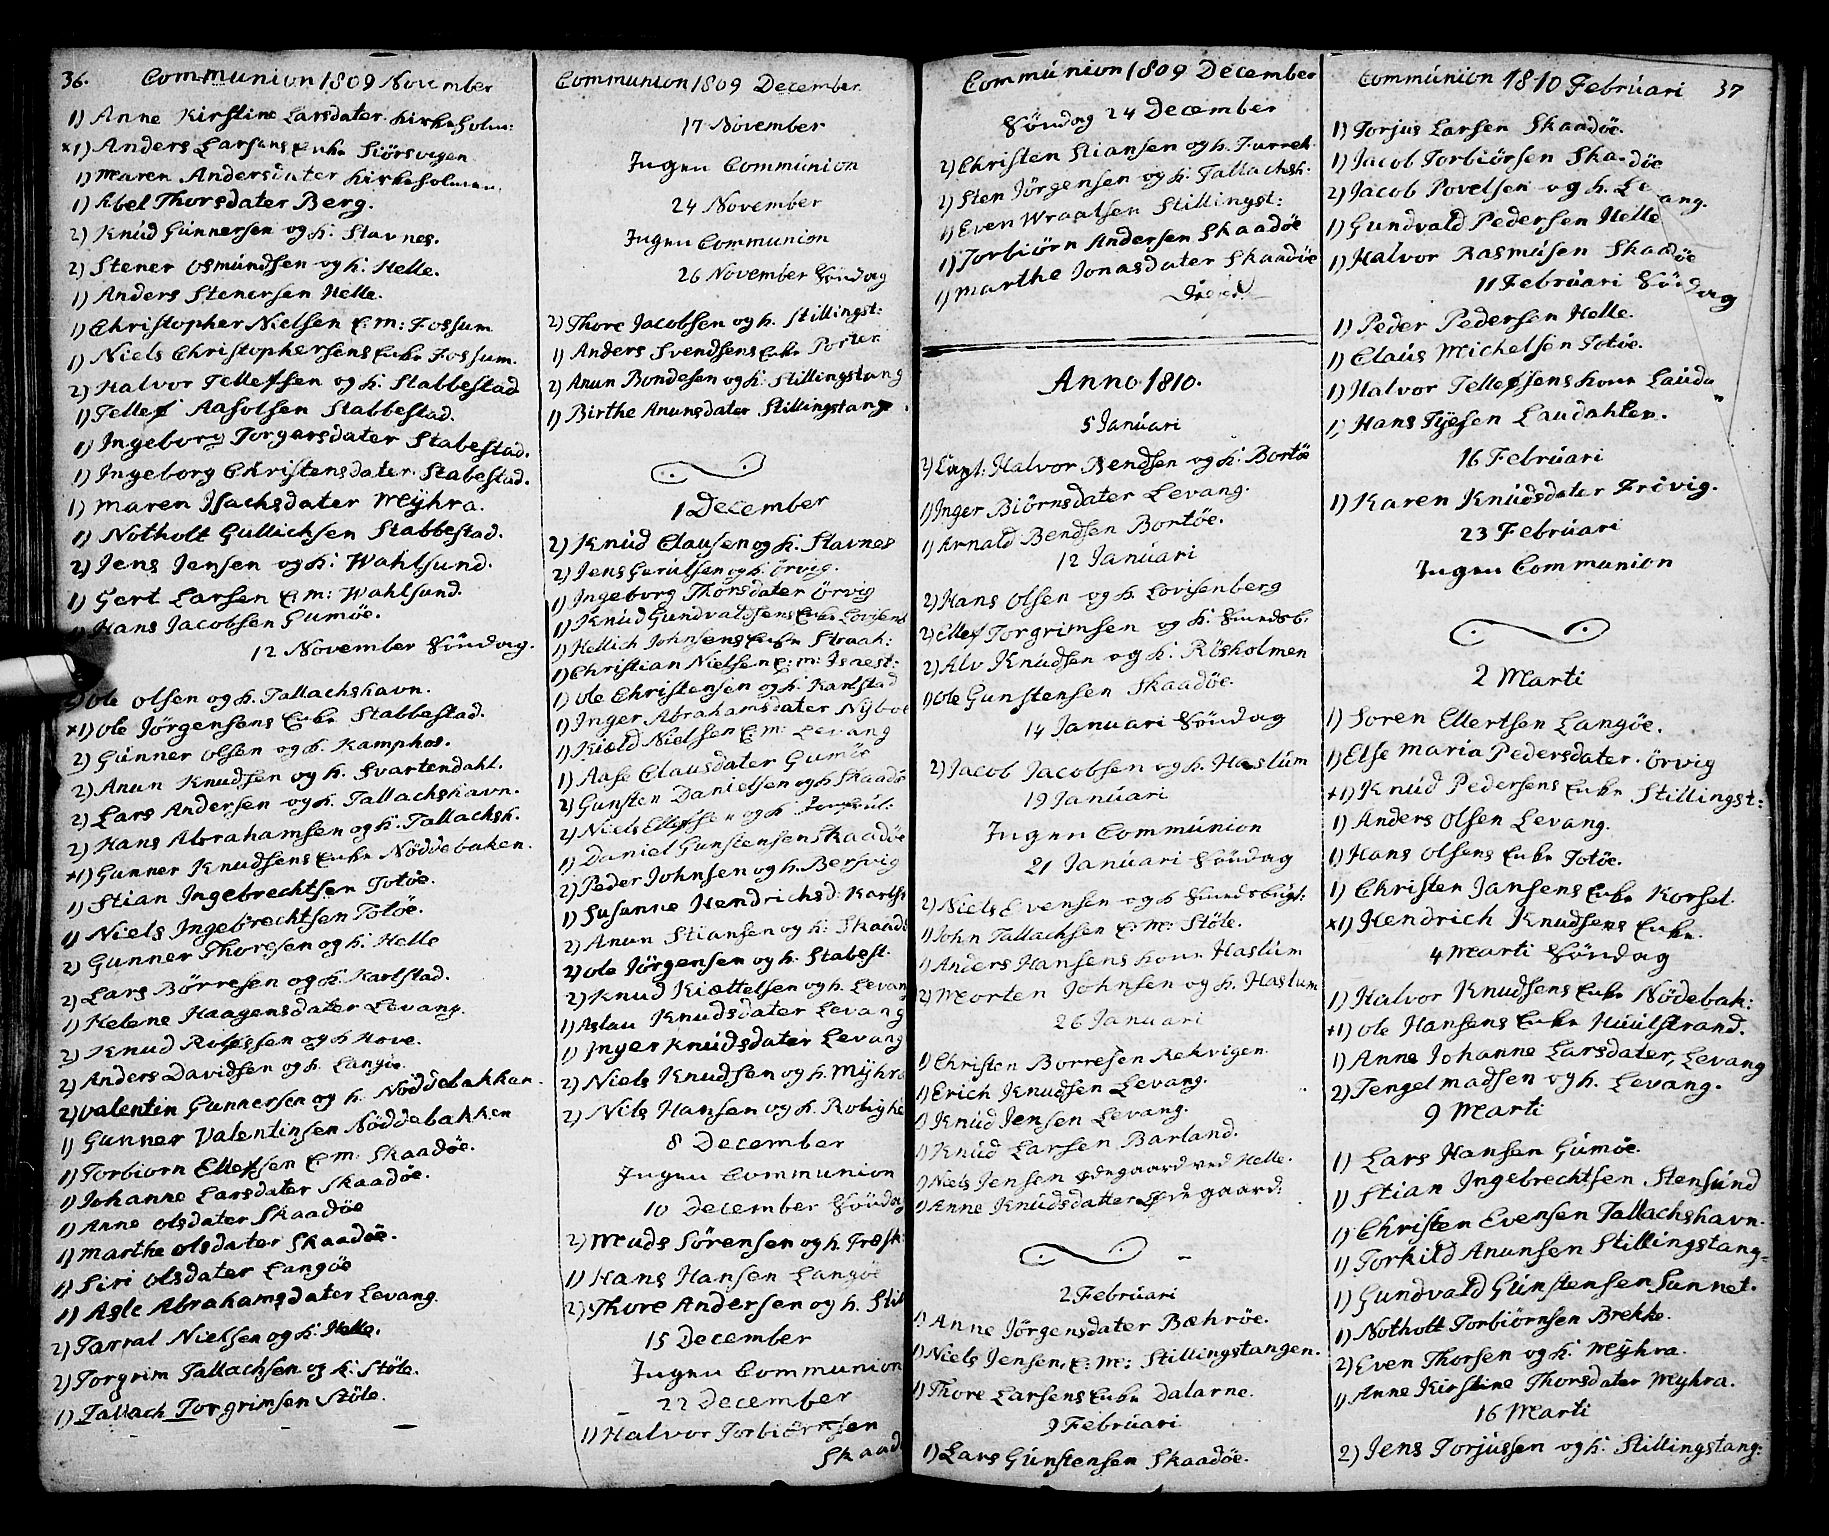 36. Communion 1809 November
1) Anne Kirstine Larsdater Kirkeholm:
x1) Anders Larsens Enke Siörsvigen
1) Maren Andersdater Kirkeholmen.
1) Abel Thorsdater Berg.
2) Knud Gunnersen og h. Stavnes.
2) Stener Osmundsen og h. Helle.
1) Anders Stenersen Helle.
1) Christopher Nielsen E: m: Fossum
1) Niels Christophersens Enke Fossum.
2) Halvor Tellefsen og h. Stabbestad
1) Tellef Aasolsen Stabbestad.
1) Ingeborg Torgersdater Stabestad.
1) Ingeborg Christensdater Stabestad.
1) Maren Isachsdater Meÿhra.
1) Notholt Gullichsen Stabbestad.
2) Jens Jensen og h: Wahlsund.
1) Gert Larsen E: m: Wahlsund.
Hans Jacobsen Gumöe.
12 November Söndag.
Ole Olsen og h. Tallachshavn.
x1) Ole Jörgensens Enke Stabbestad.
2) Gunner Olsen og h. Kamphos.
2) Anun Knudsen og h. Svartendahl.
2) Lars Andersen og h. Tallachshavn.
2) Hans Abrahamsen og h. Tallachsh.
x1) Gunner Knudsens Enke Nöddebaken.
1) Stian Ingebrechtsen Totöe.
1) Niels Ingebrechtsen Totöe.
2) Gunner Thoresen og h: Helle
2) Lars Börresen og h. Karlstad.
1) Helene Haagensdater Levang.
2) Knud Rolfssen og h Hove.
2) Anders Davidsen og h. Langöe.
2) Valentin Gunnersen og h. Nöddebakken.
1) Gunner Valentinsen Nöddebakken
1) Torbiorn Ellefsen E: m: Skaadöe.
1) Johanne Larsdater Skaadöe.
1) Anne Olsdater Skaadöe
1) Marthe Olsdater Skaadöe.
1) Siri Olsdater Langöe
1) Asle Abrahamsdater Levang.
2) Tarral Nielsen og h: Helle.
2) Torgrim Tallachsen og h: Stöle.
1) Tallach Torgrimsen Stöle.
Communion 1809 December
17 November
Ingen Communion
24 November
Ingen Communion
26 November Söndag
2) Thore Jacobsen og h. Stillingst:
1) Anders Svendsens Enke Porter
2) Anun Bondesen og h: Stillingstang
1) Birthe Anunsdater Stillingstang
1 December
2) Knud Clausen og h: Stavnes
2) Jens Gerulsen og h. Örvig.
1) Ingeborg Thorsdater Örvig
1) Knud Gundvaldsens Enke Lovisenb
1) Hellich Johnsens Enke Straah:
1) Christian Nielsen E: m: Isaest:
1) Ole Christensen og h: Karlstad
1) Inger Abrahamsdater Nÿboe
1) Kiæld Nielsen E: m: Levang
1) Aase Clausdater Gumöe
2) Gunsten Danielsen og h Skaadö
2) Niels Ellefsen og h
1) Daniel Gunstensen Skaadöe
2) Peder Johnsen og h. Bersvig
1) Susanne Hendrichsd: Karlst
2) Anun Stiansen og h: Skaadö
2) Ole Jörgensen og h: Stabest.
2) Knud Kiættelsen og h. Levang
1) Aslau Knudsdater Levang
1) Inger Knudsdater Levang
2) Niels Knudsen og h. Mÿhra
2) Nils Hansen og h. Rolighe
8 December
Ingen Communion
10 December Söndag
2) Mads Sörensen og h. Træsk:
1) Hans Hansen Langöe
2) Thore Andersen og h. Stil
15 December
Ingen Communion
22 December
1) Halvor Torbiörnsen
Skaad
Communion 1809 December
Söndag 24 December
2) Christen Stiansen og h. Furreh.
2) Sten Jörgensen og h: Tallachsh.
1) Even Wraalsen Stillingst:
1) Torbiörn Andersen Skaadöe
1) Marthe Jonasdater Skaadöe
Anno 1810.
5 Januari
2) Halvor Bendsen og h: Bortöe
1) Inger Biörnsdater Levang.
1) Arnald Bendsen Bortöe.
12 Januari
2) Hans Olsen og h. Lovisenberg
2) Ellef Torgrimsen og h: Sundsb.
2) Alv Knudsen og h: Rösholmen
1) Ole Gunstensen Skaadöe.
14 Januari Söndag
2) Jacob Jacobsen og h: Haslum
19 Januari
Ingen Communion
21 Januari Söndag
2) Niels Evensen og h Sundsbugt:
1) John Tallachsen E: M: Stöle.
1) Anders Hansens kone Haslum
2) Morten Johnsen og h. Haslum
26 Januari
1) Christen Borresen Rekvigen.
1) Erich Knudsen Levang.
1) Knud Jensen Levang.
1) Knud Larsen Barland.
1) Niels Jensen Ödegaard ved Helle.
1) Anne Knudsdatter Ödegaard:
2 Februari
1) Anne Jörgensdater Bærhöe.
1) Niels Jensen, E: M: Stillingstangen.
1) Thore Larsens Enke Dalarne.
9 Februari
1) Lars Gunstensen Skaadöe.
Communion 1810 Februari 37
1) Torjus Larsen Skaadöe.
1) Jacob Torbiörsen Skaadöe
2) Jacob Povelsen og h. Levang.
1) Gundvald Pedersen Helle
1) Halvor Rasmusen Skaadöe
11 Februari Söndag
1) Peder Pedersen Helle.
1) Claus Michelsen Totöe.
1) Halvor Tellefsens kone Lauda
1) Hans Tÿesen Laudahlen.
16 Februari
1) Karen Knudsdater Frövig.
23 Februari
Ingen Communion
2 Marti
1) Soren Ellertsen Langöe.
1) Else Maria Pedersdater. Örvig
x1) Knud Pedersens Enke Stillingst:
1) Anders Olsen Levang.
1) Hans Olsens Enke Totöe.
1) Christen Jansens Enke Korset.
x1) Hendrich Knudsens Enke.
4 Marti Söndag
1) Halvor Knudsens Enke Nödebak:
x1) Ole Hansens Enke Huulstrand.
1) Anne Johanne Larsdater, Levang
2) Tengel Madsen og h. Levang.
9 Marti
1) Lars Hansen Gumöe.
1) Stian Ingebrechtsen Stensund
1) Christen Evensen Tallachshavn.
1) Torkild Anunsen Stillingstang.
1) Gundvald Gunstensen Sunnet.
1) Notholt Torbiörnsen Brekke.
2) Even Thorsen og h: Mÿhra.
1) Anne Kirstine Thorsdater Mÿhra.
16 Marti
2) Jens Torjussen og h: Stillingstang: